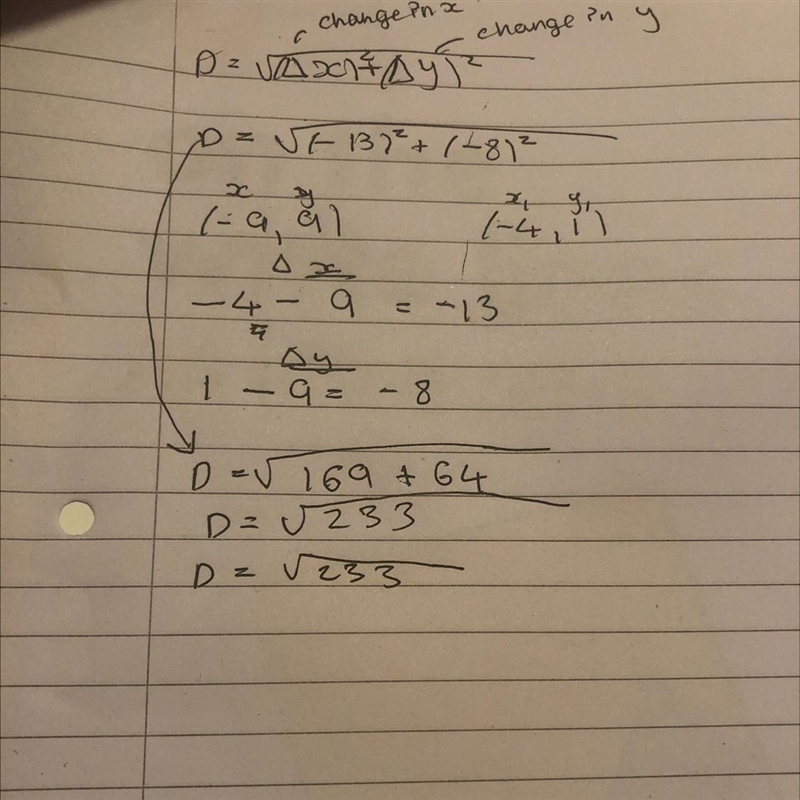 change in x
change in y
D = √(Δx)²+(Δy)²
D = √(-13)² + (-8)²
x y x₁ y₁
(-9, 9) (-4, 1)
Δ x
-4 - 9 = -13
Δy
1 - 9 = -8
D = √169 + 64
D = √233
D = √233